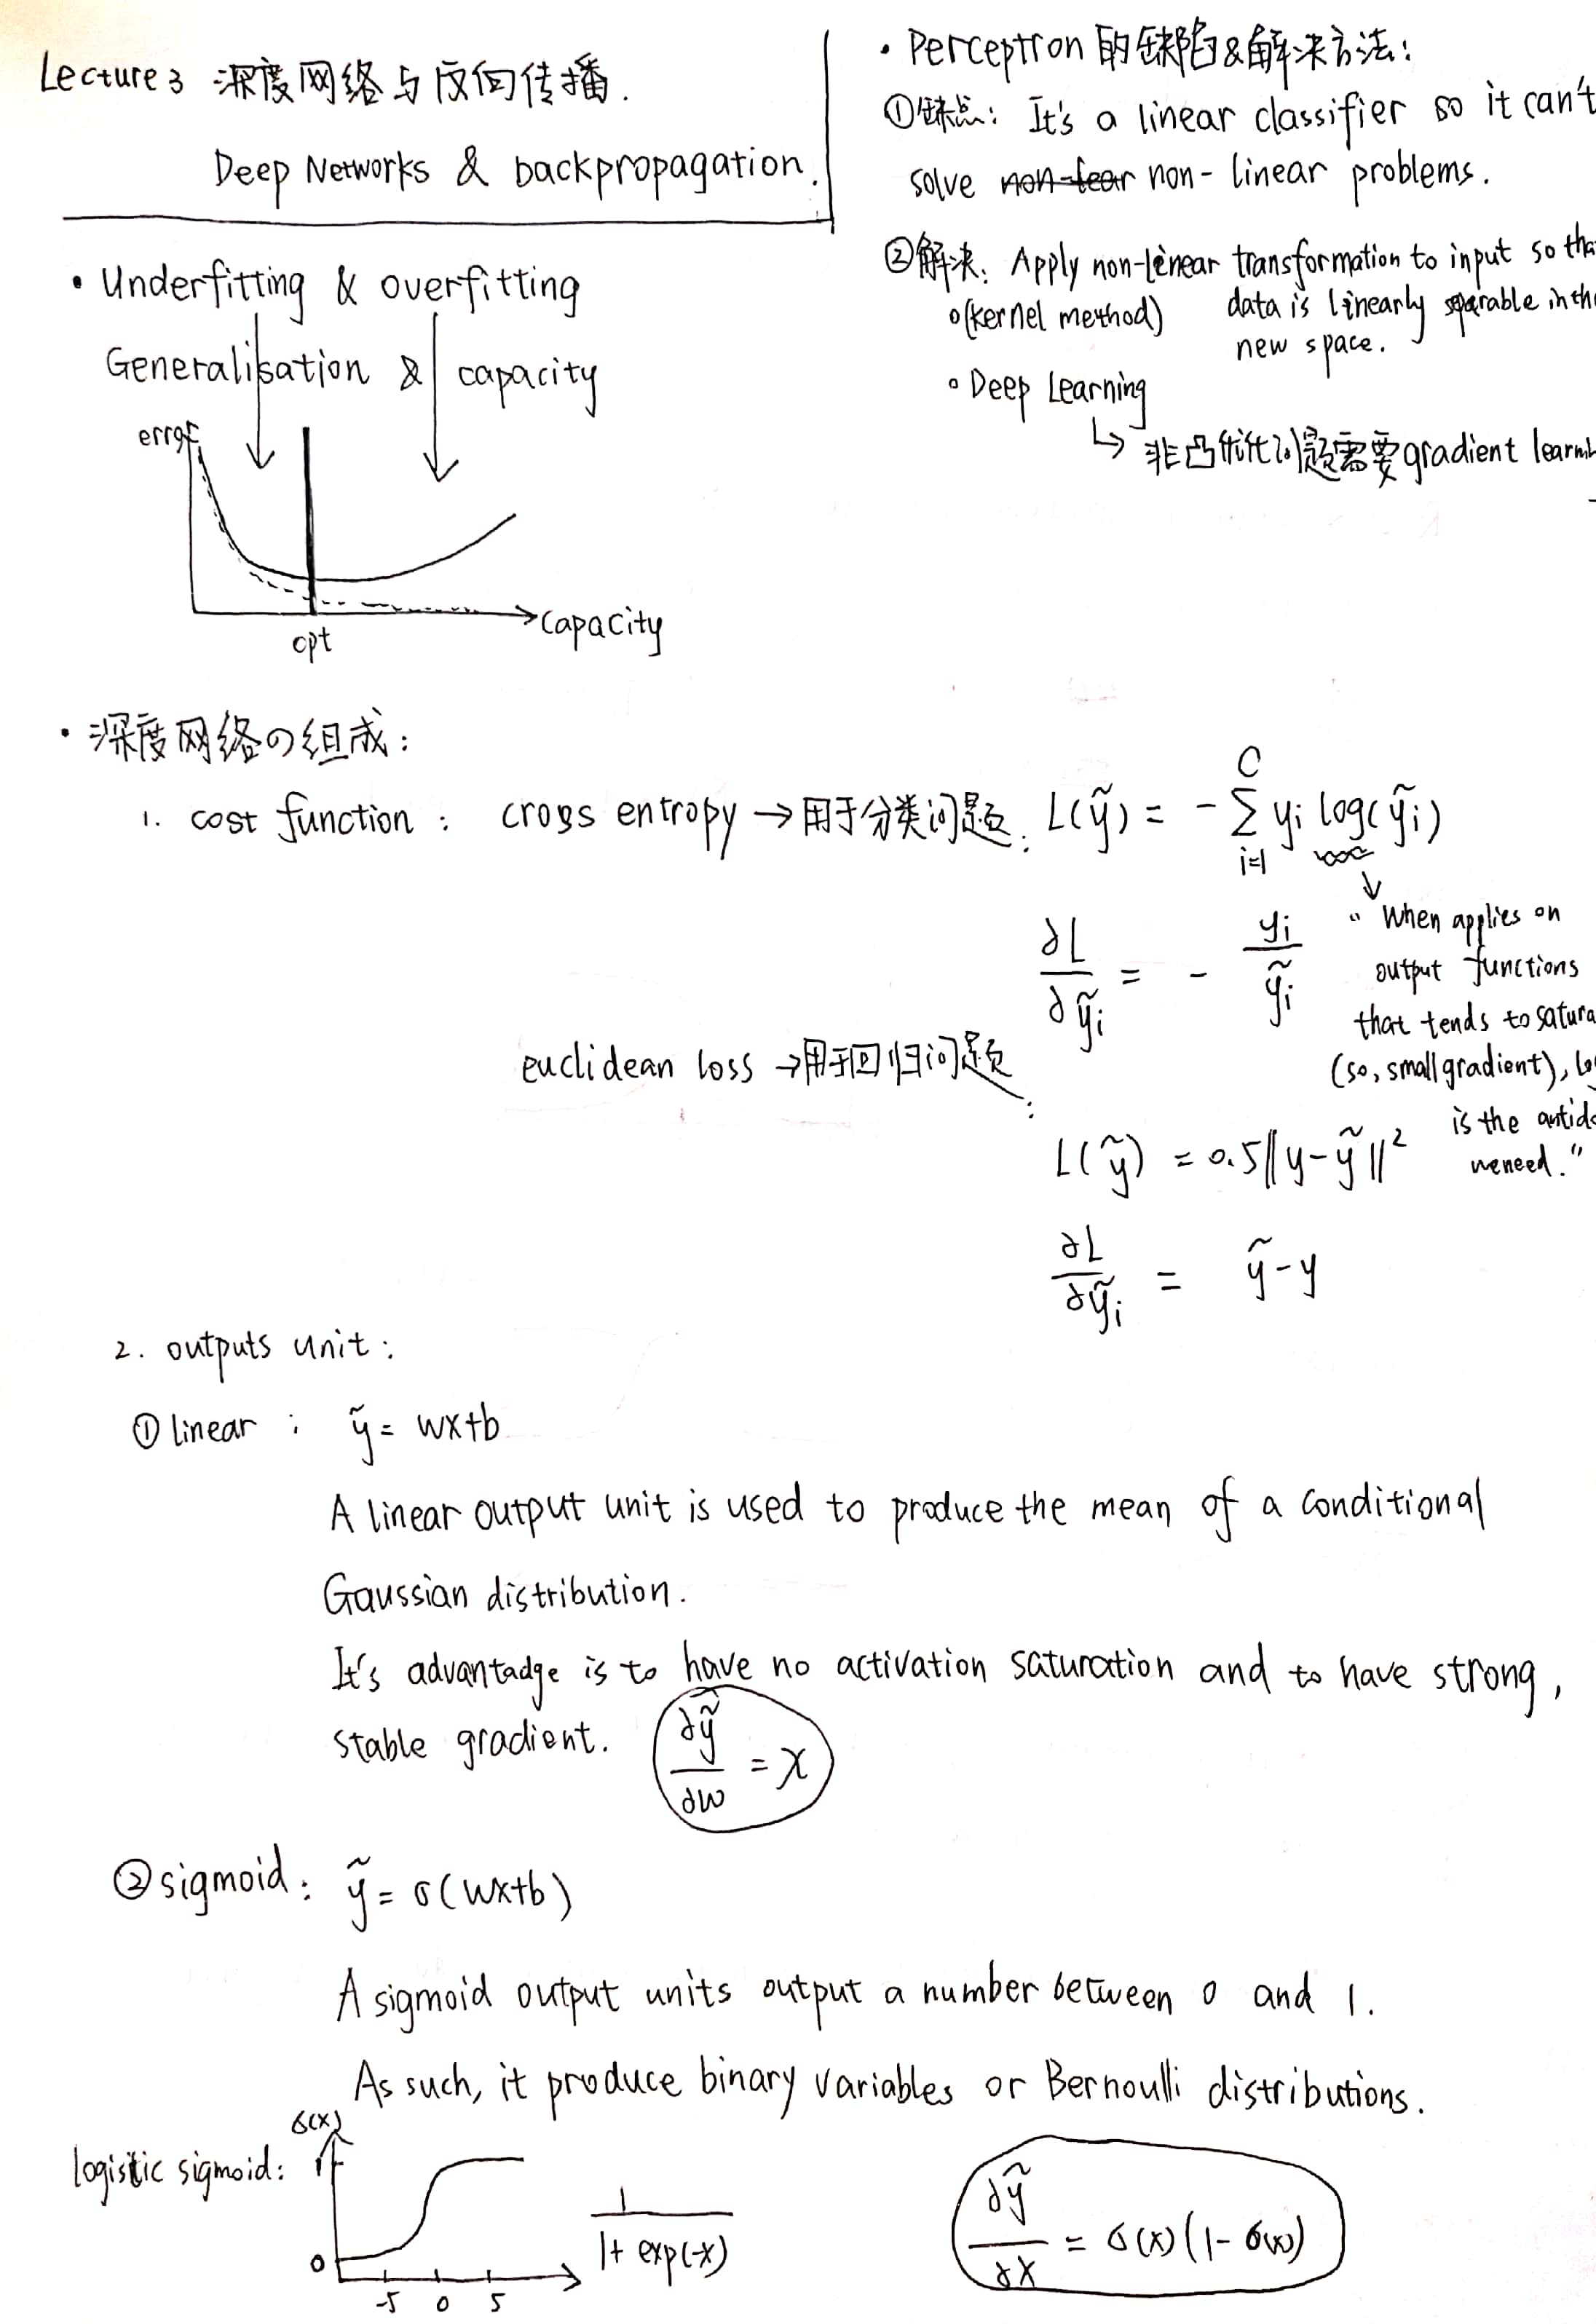 Lecture 3 深度网络与反向传播.
Deep Networks & backpropagation.
• Underfitting & overfitting
Generalisation & capacity
error
opt
capacity
• Perceptron 的缺陷&解决方法:
①缺点: It's a linear classifier so it can't
solve non-linear problems.
②解决: Apply non-linear transformation to input so tha
◦(kernel method) data is linearly sparable in the
new space.
◦ Deep Learning
↳ 非凸优化问题需要gradient learni
• 深度网络の组成:
1. cost function : cross entropy → 用于分类问题: L(ỹ) = - ∑_{i=1}^{C} yi log(ỹi)
∂L/∂ỹi = - yi/ỹi
" When applies on
output functions
that tends to satura
(so, small gradient), lo
is the antido
we need."
euclidean loss → 用于回归问题:
L(ỹ) = 0.5||y-ỹ||²
∂L/∂ỹi = ỹ-y
2. outputs unit :
① linear : ỹ = wx+b
A linear output unit is used to produce the mean of a conditional
Gaussian distribution.
It's advantadge is to have no activation saturation and to have strong,
stable gradient. ∂ỹ/∂w = x
② sigmoid : ỹ = σ(wx+b)
A sigmoid output units output a number between 0 and 1.
As such, it produce binary variables or Bernoulli distributions.
logistic sigmoid:
σ(x)
1
0
-5 0 5
1/(1+ exp(-x))
∂ỹ/∂x = σ(x)(1-σ(x))